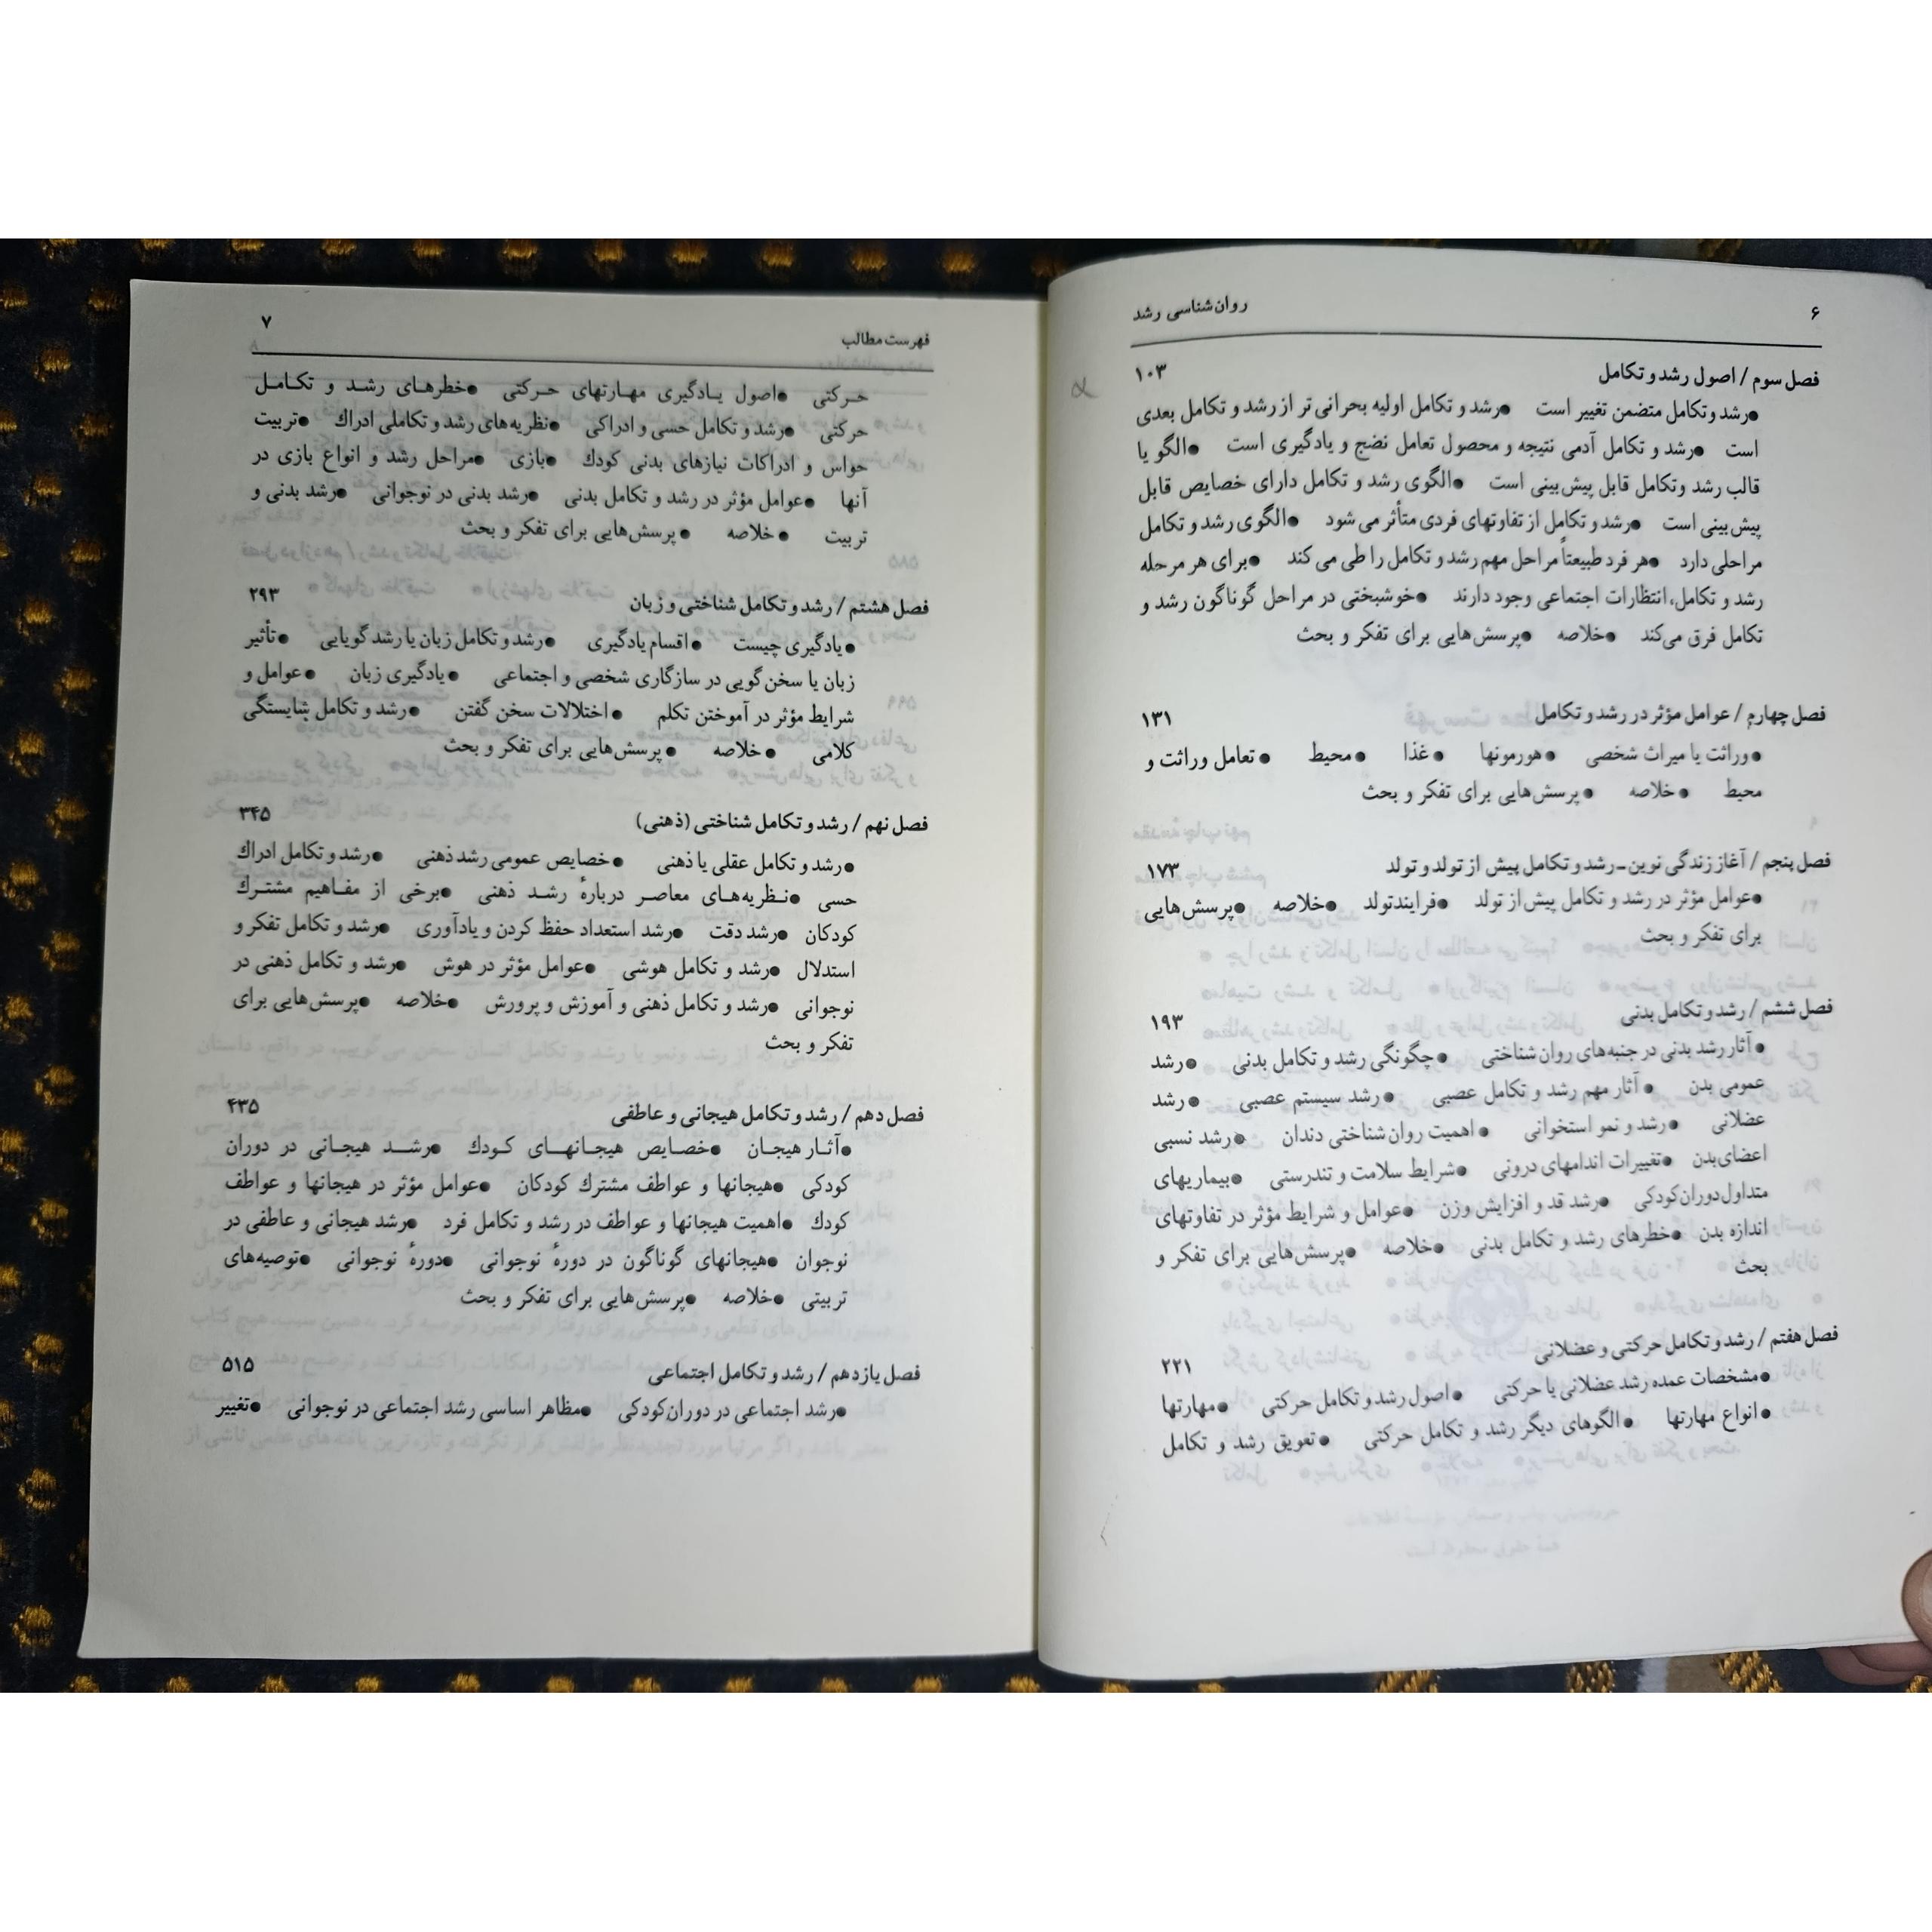 ۶
روان‌شناسی رشد
فصل سوم / اصول رشد و تکامل ۱۰۳
●رشد و تکامل متضمن تغییر است ●رشد و تکامل اولیه بحرانی تر از رشد و تکامل بعدی
است ●رشد و تکامل آدمی نتیجه و محصول تعامل نضج و یادگیری است ●الگو یا
قالب رشد وتکامل قابل پیش‌بینی است ●الگوی رشد و تکامل دارای خصایص قابل
پیش‌بینی است ●رشد و تکامل از تفاوتهای فردی متأثر می شود ●الگوی رشد و تکامل
مراحلی دارد ●هر فرد طبیعتاً مراحل مهم رشد و تکامل را طی می کند ●برای هر مرحله
رشد و تکامل، انتظارات اجتماعی وجود دارند ●خوشبختی در مراحل گوناگون رشد و
تکامل فرق می‌کند ●خلاصه ●پرسش‌هایی برای تفکر و بحث
فصل چهارم / عوامل مؤثر در رشد و تکامل ۱۳۱
●وراثت یا میراث شخصی ●هورمونها ●غذا ●محیط ●تعامل وراثت و
محیط ●خلاصه ●پرسش‌هایی برای تفکر و بحث
فصل پنجم / آغاز زندگی نوین ـ رشد و تکامل پیش از تولد و تولد ۱۷۳
●عوامل مؤثر در رشد و تکامل پیش از تولد ●فرایند تولد ●خلاصه ●پرسش‌هایی
برای تفکر و بحث
فصل ششم / رشد و تکامل بدنی ۱۹۳
●آثار رشد بدنی در جنبه‌های روان شناختی ●چگونگی رشد و تکامل بدنی ●رشد
عمومی بدن ●آثار مهم رشد و تکامل عصبی ●رشد سیستم عصبی ●رشد
عضلانی ●رشد و نمو استخوانی ●اهمیت روان شناختی دندان ●رشد نسبی
اعضای بدن ●تغییرات اندامهای درونی ●شرایط سلامت و تندرستی ●بیماریهای
متداول دوران کودکی ●رشد قد و افزایش وزن ●عوامل و شرایط مؤثر در تفاوتهای
اندازه بدن ●خطرهای رشد و تکامل بدنی ●خلاصه ●پرسش‌هایی برای تفکر و
بحث
فصل هفتم / رشد و تکامل حرکتی و عضلانی ۲۲۱
●مشخصات عمده رشد عضلانی یا حرکتی ●اصول رشد و تکامل حرکتی ●مهارتها
●انواع مهارتها ●الگوهای دیگر رشد و تکامل حرکتی ●تعویق رشد و تکامل
فهرست مطالب
۷
حرکتی ●اصول یادگیری مهارتهای حرکتی ●خطرهای رشد و تکامل
حرکتی ●رشد و تکامل حسی و ادراکی ●نظریه‌های رشد و تکاملی ادراك ●تربیت
حواس و ادراکات نیازهای بدنی کودك ●بازی ●مراحل رشد و انواع بازی در
آنها ●عوامل مؤثر در رشد و تکامل بدنی ●رشد بدنی در نوجوانی ●رشد بدنی و
تربیت ●خلاصه ●پرسش‌هایی برای تفکر و بحث
فصل هشتم / رشد و تکامل شناختی و زبان ۲۹۳
●یادگیری چیست ●اقسام یادگیری ●رشد و تکامل زبان یا رشد گویایی ●تأثیر
زبان یا سخن‌گویی در سازگاری شخصی و اجتماعی ●یادگیری زبان ●عوامل و
شرایط مؤثر در آموختن تکلم ●اختلالات سخن گفتن ●رشد و تکامل شایستگی
کلامی ●خلاصه ●پرسش‌هایی برای تفکر و بحث
فصل نهم / رشد و تکامل شناختی (ذهنی) ۳۴۵
●رشد و تکامل عقلی یا ذهنی ●خصایص عمومی رشد ذهنی ●رشد و تکامل ادراك
حسی ●نظریه‌های معاصر دربارهٔ رشد ذهنی ●برخی از مفاهیم مشترك
کودکان ●رشد دقت ●رشد استعداد حفظ کردن و یادآوری ●رشد و تکامل تفکر و
استدلال ●رشد و تکامل هوشی ●عوامل مؤثر در هوش ●رشد و تکامل ذهنی در
نوجوانی ●رشد و تکامل ذهنی و آموزش و پرورش ●خلاصه ●پرسش‌هایی برای
تفکر و بحث
فصل دهم / رشد و تکامل هیجانی و عاطفی ۴۳۵
●آثار هیجان ●خصایص هیجانهای کودك ●رشد هیجانی در دوران
کودکی ●هیجانها و عواطف مشترك کودکان ●عوامل مؤثر در هیجانها و عواطف
کودك ●اهمیت هیجانها و عواطف در رشد و تکامل فرد ●رشد هیجانی و عاطفی در
نوجوان ●هیجانهای گوناگون در دورهٔ نوجوانی ●دورهٔ نوجوانی ●توصیه‌های
تربیتی ●خلاصه ●پرسش‌هایی برای تفکر و بحث
فصل یازدهم / رشد و تکامل اجتماعی ۵۱۵
●رشد اجتماعی در دوران کودکی ●مظاهر اساسی رشد اجتماعی در نوجوانی ●تغییر